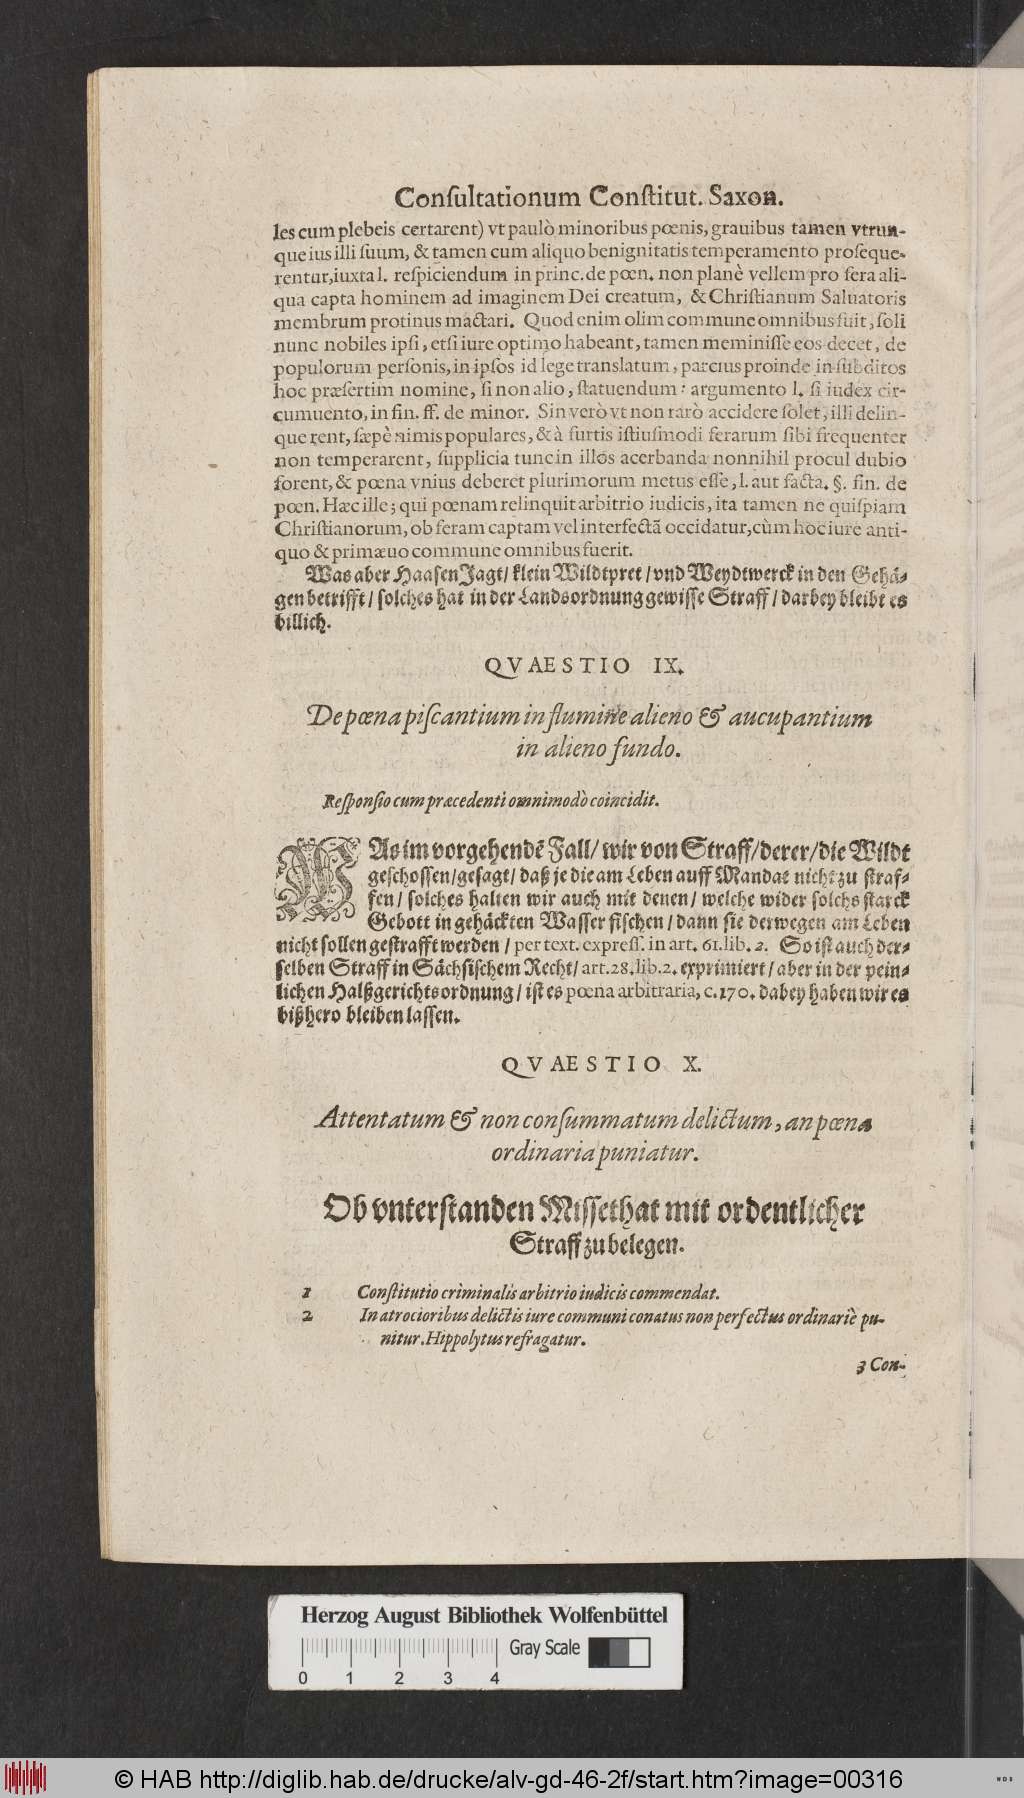 Conſultationum Conſtitut. Saxon.
les cum plebeis certarent) vt paulò minoribus pœnis, grauibus tamen vtrun-
que ius illi ſuum, & tamen cum aliquo benignitatis temperamento proſeque-
rentur, iuxta l. reſpiciendum in princ. de pœn. non planè vellem pro fera ali-
qua capta hominem ad imaginem Dei creatum, & Chriſtianum Saluatoris
membrum protinus mactari. Quod enim olim commune omnibus fuit, ſoli
nunc nobiles ipſi, etſi iure optimo habeant, tamen meminiſſe eos decet, de
populorum perſonis, in ipſos id lege translatum, parcius proinde in ſubditos
hoc præſertim nomine, ſi non alio, ſtatuendum: argumento l. ſi iudex cir-
cumuento, in fin. ff. de minor. Sin verò vt non rarò accidere ſolet, illi delin-
querent, ſæpè nimis populares, & à furtis iſtiuſmodi ferarum ſibi frequenter
non temperarent, ſupplicia tunc in illos acerbanda nonnihil procul dubio
forent, & pœna vnius deberet plurimorum metus eſſe, l. aut facta. §. fin. de
pœn. Hæc ille; qui pœnam relinquit arbitrio iudicis, ita tamen ne quiſpiam
Chriſtianorum, ob feram captam vel interfectā occidatur, cùm hoc iure anti-
quo & primæuo commune omnibus fuerit.
Was aber Haaſen Jagt/ klein Wildtpret/ vnd Weydtwerck in den Gehä-
gen betrifft/ ſolches hat in der Landsordnung gewiſſe Straff/ darbey bleibt es
billich.
QVAESTIO IX.
De pœna piſcantium in flumine alieno & aucupantium
in alieno fundo.
Reſponſio cum præcedenti omnimodò coincidit.
WAs im vorgehendē Fall/ wir von Straff/ derer/ die Wildt
geſchoſſen/ geſagt/ daß je die am Leben auff Mandat nicht zu ſtraf-
fen/ ſolches halten wir auch mit denen/ welche wider ſolchs ſtarck
Gebott in gehäckten Waſſer fiſchen/ dann ſie derwegen am Leben
nicht ſollen geſtrafft werden/ per text. expreſſ. in art. 61. lib. 2. So iſt auch der-
ſelben Straff in Sächſiſchem Recht/ art. 28. lib. 2. exprimiert/ aber in der pein-
lichen Halßgerichtsordnung/ iſt es pœna arbitraria, c. 170. dabey haben wir es
bißhero bleiben laſſen.
QVAESTIO X.
Attentatum & non conſummatum delictum, an pœna
ordinaria puniatur.
Ob vnterſtanden Miſſethat mit ordentlicher
Straff zu belegen.
1 Conſtitutio criminalis arbitrio iudicis commendat.
2 In atrocioribus delictis iure communi conatus non perfectus ordinariè pu-
nitur. Hippolytus refragatur.
3 Con-
Herzog August Bibliothek Wolfenbüttel
Gray Scale
0 1 2 3 4
© HAB http://diglib.hab.de/drucke/alv-gd-46-2f/start.htm?image=00316